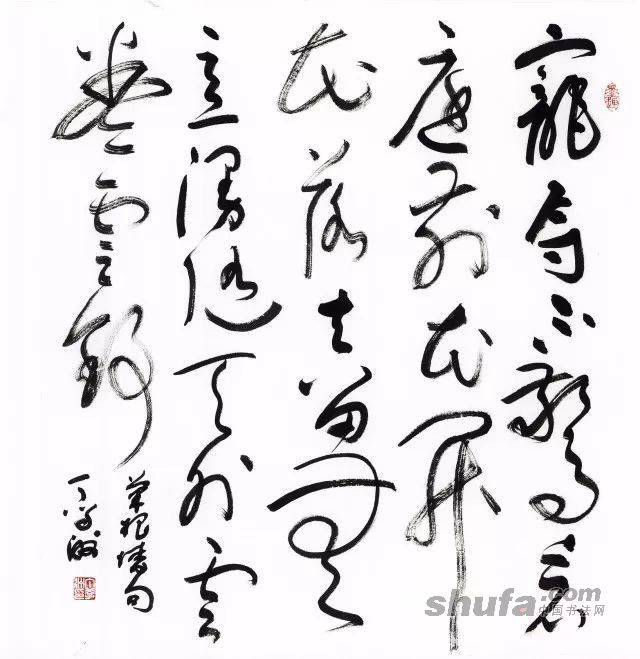 寵辱不驚看
庭前花開
花落去留無
意漫隨天外雲
卷雲舒
菜根譚句
丁
shufa.com
中国书法网